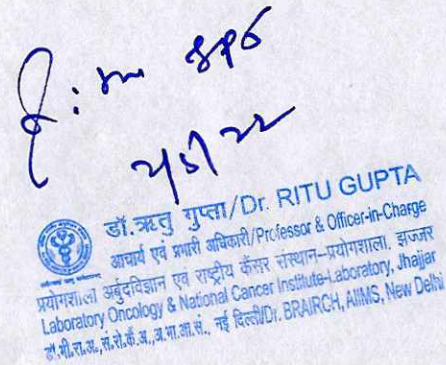 2/5/22
डॉ. ऋतु गुप्ता/Dr. RITU GUPTA
आचार्य एवं प्रभारी अधिकारी/Professor & Officer-in-Charge
प्रयोगशाला अर्बुदविज्ञान एवं राष्ट्रीय कैंसर संस्थान-प्रयोगशाला, झज्जर
Laboratory Oncology & National Cancer Institute-Laboratory, Jhajjar
डॉ.भी.रा.अ., स.रो.कैं.अ., अ.भा.आ.सं., नई दिल्ली/Dr. BRAIRCH, AIIMS, New Delhi